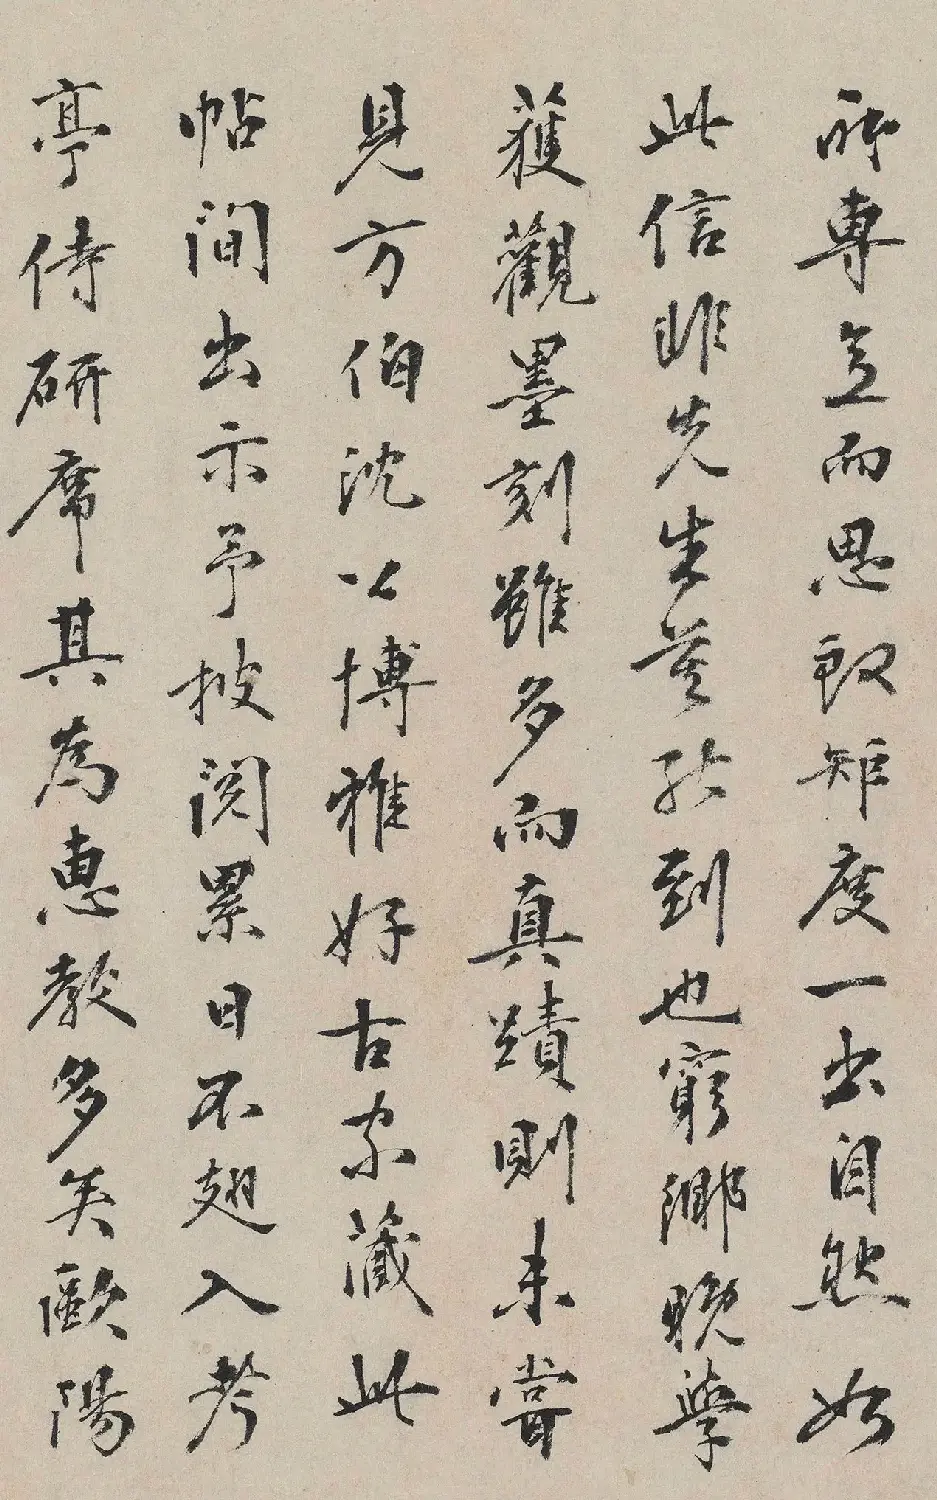 所專立而思致矩度一出自然如
此信非先生莫能到也窮鄉晚學
獲觀墨刻雖多而真蹟則未嘗
見方伯沈公博雅好古家藏此
帖間出示予披閱累日不翅入考
亭侍研席其為惠教多矣歐陽